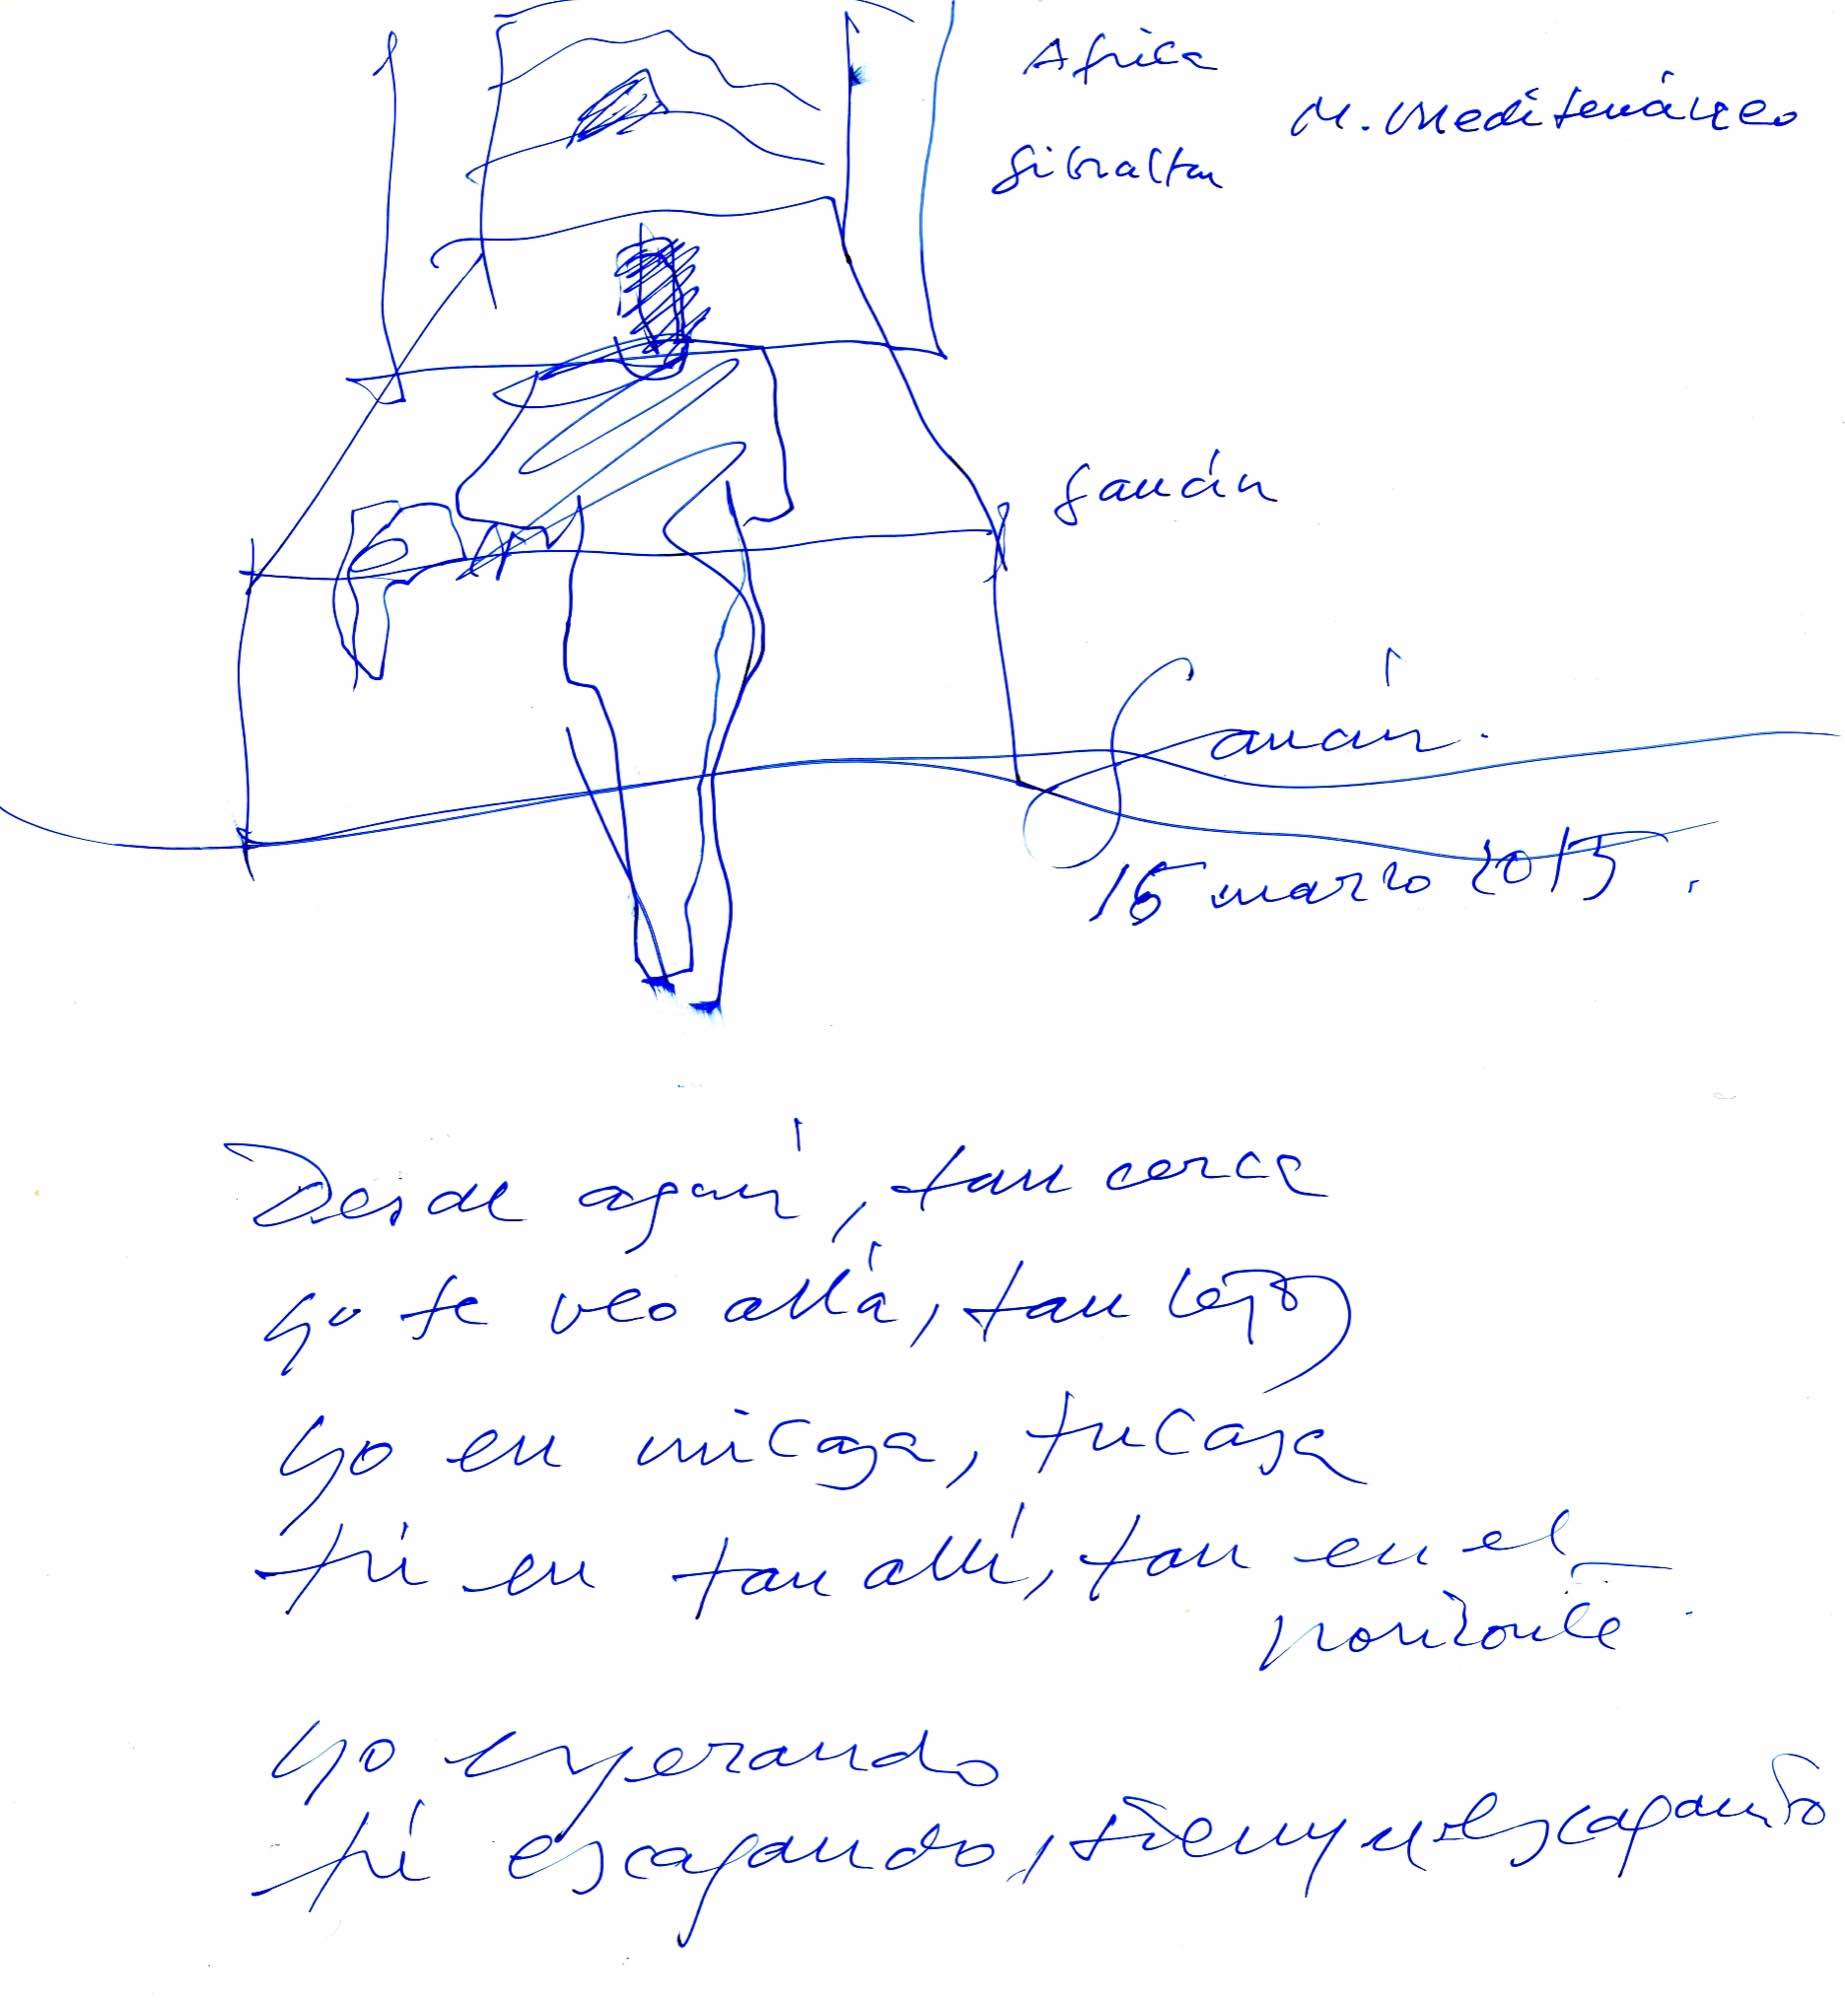 Africa
M. Mediterráneo
Gibraltar
Gaucín
Gaucín.
15 marzo 2015.
Desde aquí, tan cerca
yo te veo allá, tan lejos
yo en mi casa, tu casa
tú en tan allí, tan en el
horizonte.
yo esperando
tú escapando, siempre escapando